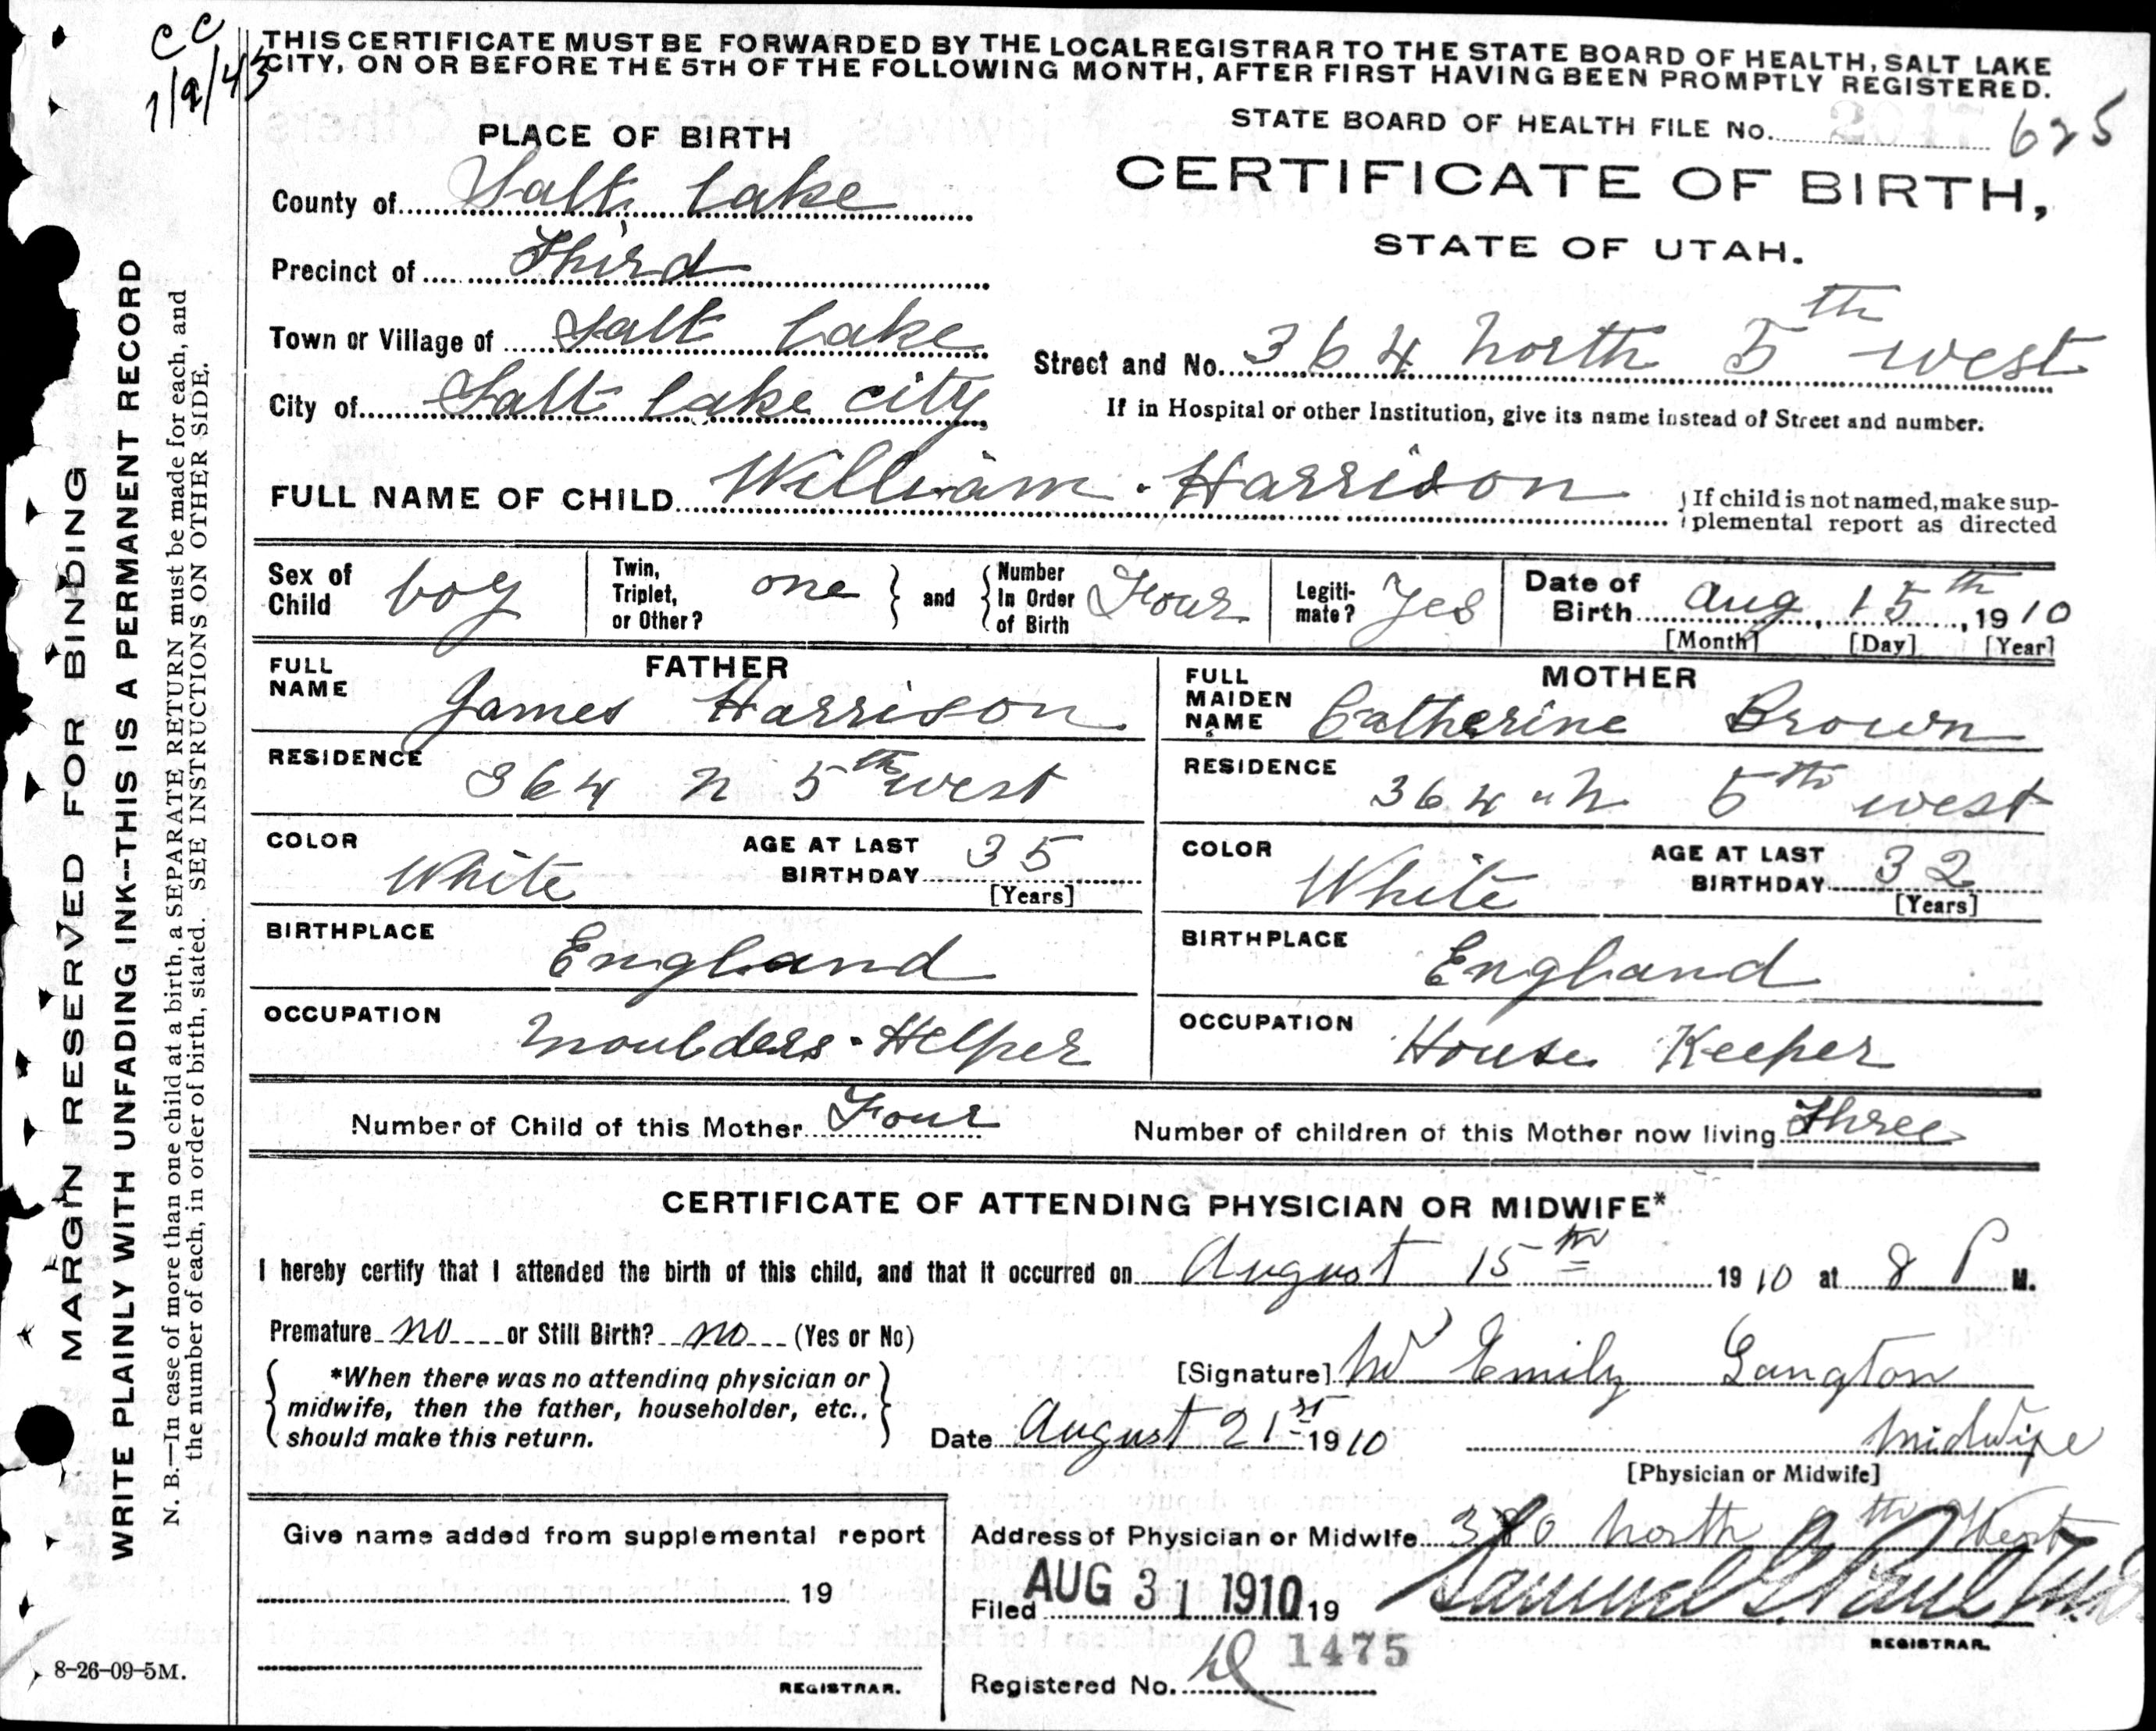 CC
1/9/43
THIS CERTIFICATE MUST BE FORWARDED BY THE LOCAL REGISTRAR TO THE STATE BOARD OF HEALTH, SALT LAKE
CITY, ON OR BEFORE THE 5TH OF THE FOLLOWING MONTH, AFTER FIRST HAVING BEEN PROMPTLY REGISTERED.
STATE BOARD OF HEALTH FILE No. 625
PLACE OF BIRTH
CERTIFICATE OF BIRTH,
STATE OF UTAH.
County of Salt Lake
Precinct of Third
Town or Village of Salt Lake
Street and No. 364 North 5th West
City of Salt Lake City
If in Hospital or other Institution, give its name instead of Street and number.
FULL NAME OF CHILD William Harrison
If child is not named, make sup-
plemental report as directed
Sex of Child boy
Twin, Triplet, or Other? one
and
Number In Order of Birth Four
Legiti-mate? Yes
Date of Birth Aug, 15th, 1910
[Month] [Day] [Year]
FATHER
FULL NAME James Harrison
RESIDENCE 364 N 5th West
COLOR White
AGE AT LAST BIRTHDAY 35
[Years]
BIRTHPLACE England
OCCUPATION Moulders-Helper
MOTHER
FULL MAIDEN NAME Catherine Brown
RESIDENCE 364 N 5th West
COLOR White
AGE AT LAST BIRTHDAY 32
[Years]
BIRTHPLACE England
OCCUPATION House Keeper
Number of Child of this Mother Four
Number of children of this Mother now living Three
CERTIFICATE OF ATTENDING PHYSICIAN OR MIDWIFE*
I hereby certify that I attended the birth of this child, and that it occurred on August 15th 1910 at 8 P M.
Premature no or Still Birth? no (Yes or No)
*When there was no attending physician or
midwife, then the father, householder, etc.,
should make this return.
[Signature] Emily Langton
Date August 21st 1910
Midwife
[Physician or Midwife]
Give name added from supplemental report
19
REGISTRAR.
Address of Physician or Midwife North West
Filed AUG 31 1910 19
Samuel G. Paul M.D.
REGISTRAR.
Registered No. 1475
8-26-09-5M.
MARGIN RESERVED FOR BINDING
WRITE PLAINLY WITH UNFADING INK--THIS IS A PERMANENT RECORD
N. B.—In case of more than one child at a birth, a SEPARATE RETURN must be made for each, and
the number of each, in order of birth, stated. SEE INSTRUCTIONS ON OTHER SIDE.